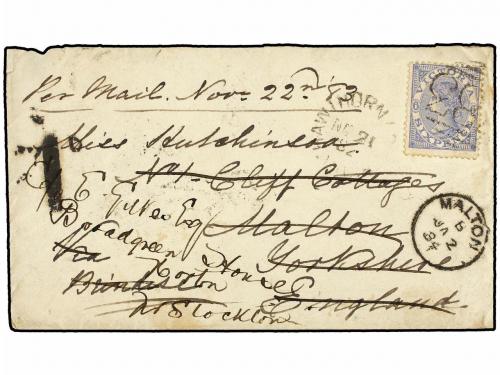 Per Mail. Nov. 22nd 83
VICTORIA
SIX PENCE
HAWTHORN
NO 21
Miss Hutchinson
No 1 Cliff Cottages
Esq
Malton
Broadgreen House
Yorkshire
Via
Brindisi
England.
Nr Stockton
MALTON
5
JA 2
84